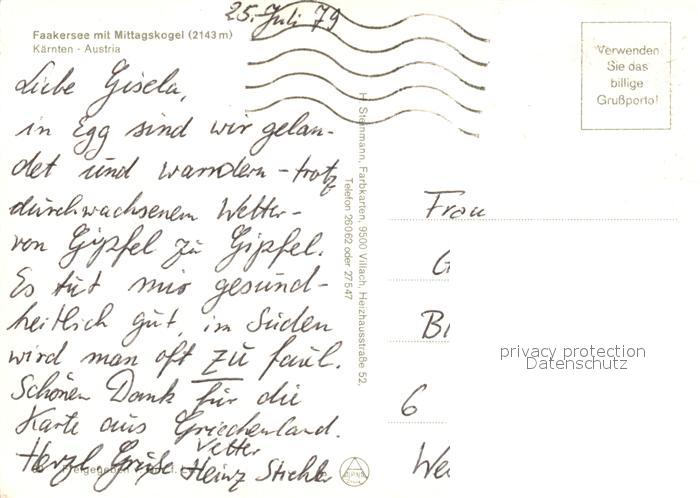 25. Juli 79
Faakersee mit Mittagskogel (2143 m)
Kärnten - Austria
Verwenden
Sie das
billige
Grußporto!
Liebe Gisela,
in Egg sind wir gelan-
det und wandern - trotz
durchwachsenem Wetter -
von Gipfel zu Gipfel.
Es tut mir gesund-
heitlich gut, im Süden
wird man oft zu faul.
Schönen Dank für die
Karte aus Griechenland.
Herzl. Grüße Vetter
Heinz
H. Steinmann, Farbkarten, 9500 Villach, Heizhausstraße 52,
Telefon 26062 oder 27547
Frau
G
6
privacy protection
Datenschutz